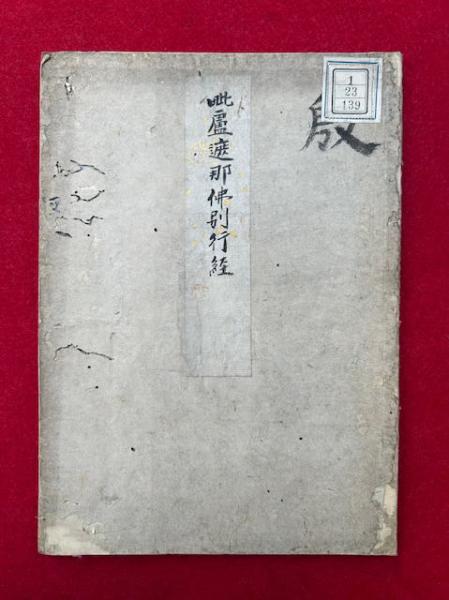 殷
1
23
139
毗盧遮那佛別行經